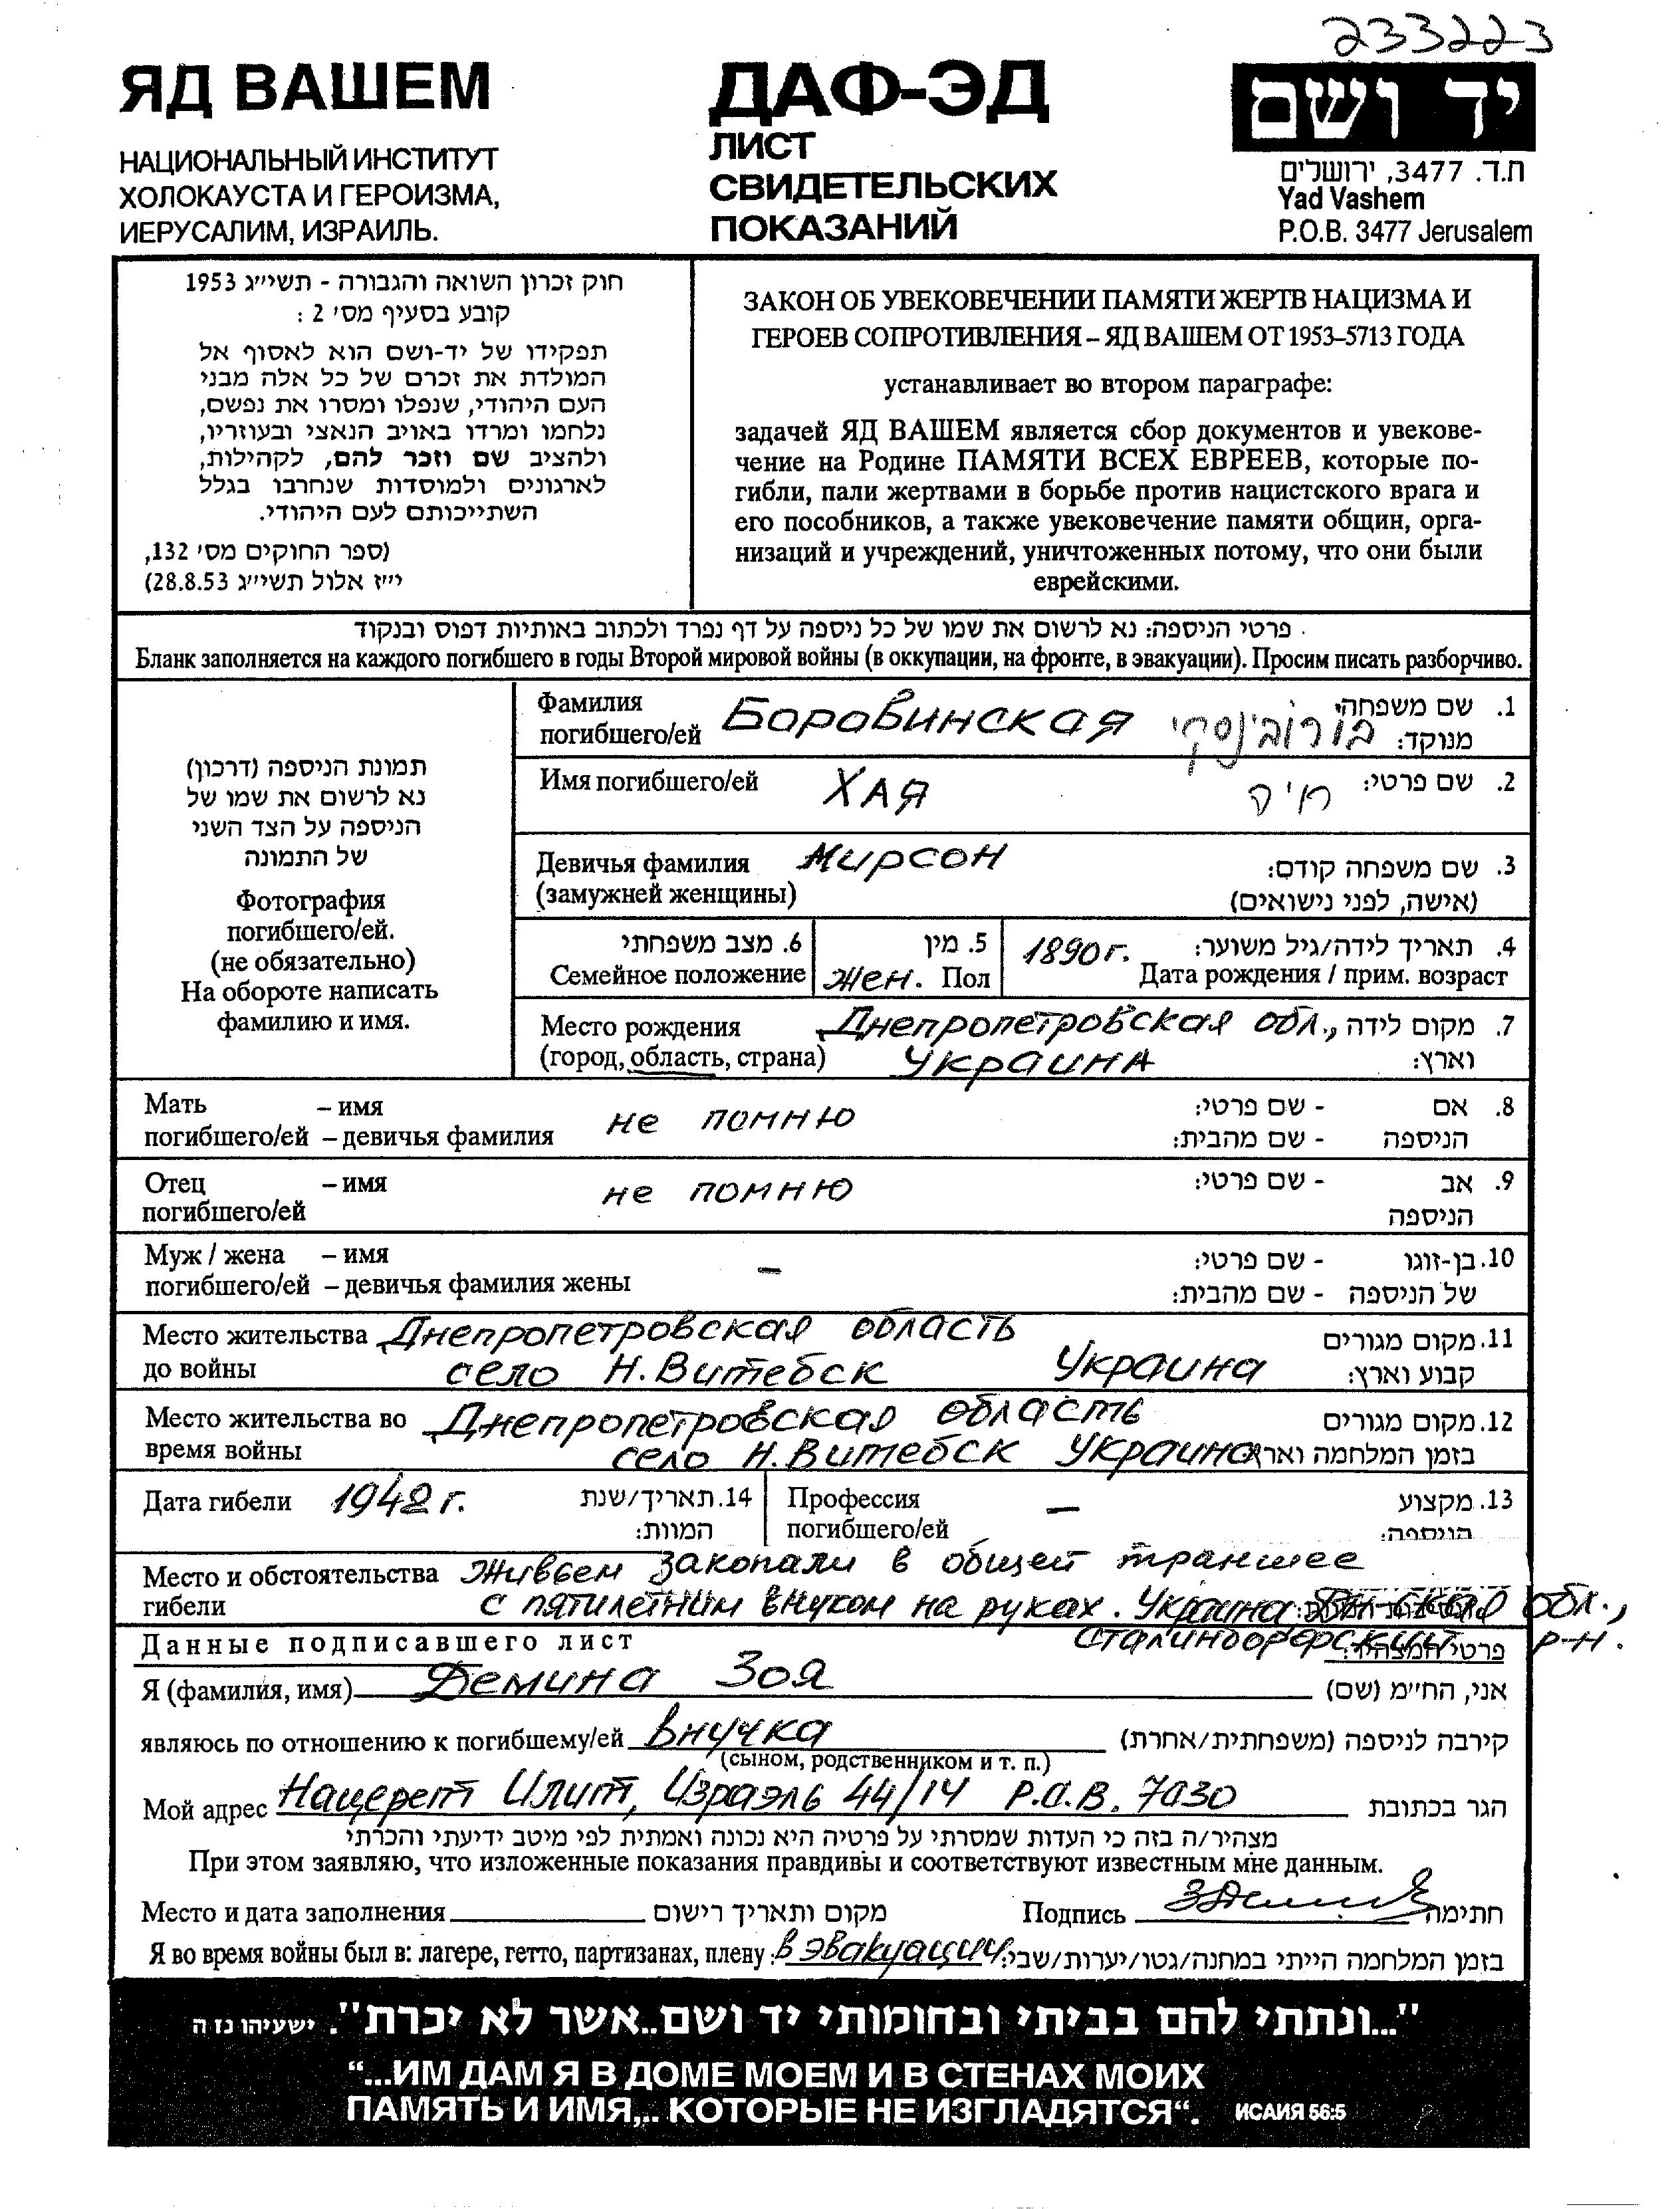 233223
ЯД ВАШЕМ
НАЦИОНАЛЬНЫЙ ИНСТИТУТ
ХОЛОКАУСТА И ГЕРОИЗМА,
ИЕРУСАЛИМ, ИЗРАИЛЬ.
ДАФ-ЭД
ЛИСТ
СВИДЕТЕЛЬСКИХ
ПОКАЗАНИЙ
יד ושם
ת.ד. 3477, ירושלים
Yad Vashem
P.O.B. 3477 Jerusalem
חוק זכרון השואה והגבורה - תשי״ג 1953
קובע בסעיף מס׳ 2 :
תפקידו של יד-ושם הוא לאסוף אל
המולדת את זכרם של כל אלה מבני
העם היהודי, שנפלו ומסרו את נפשם,
נלחמו ומרדו באויב הנאצי ובעוזריו,
ולהציב שם וזכר להם, לקהילות,
לארגונים ולמוסדות שנחרבו בגלל
השתייכותם לעם היהודי.
(ספר החוקים מס׳ 132,
י״ז אלול תשי״ג 28.8.53)
ЗАКОН ОБ УВЕКОВЕЧЕНИИ ПАМЯТИ ЖЕРТВ НАЦИЗМА И
ГЕРОЕВ СОПРОТИВЛЕНИЯ – ЯД ВАШЕМ ОТ 1953–5713 ГОДА
устанавливает во втором параграфе:
задачей ЯД ВАШЕМ является сбор документов и увекове-
чение на Родине ПАМЯТИ ВСЕХ ЕВРЕЕВ, которые по-
гибли, пали жертвами в борьбе против нацистского врага и
его пособников, а также увековечение памяти общин, орга-
низаций и учреждений, уничтоженных потому, что они были
еврейскими.
פרטי הניספה: נא לרשום את שמו של כל ניספה על דף נפרד ולכתוב באותיות דפוס ובנקוד
Бланк заполняется на каждого погибшего в годы Второй мировой войны (в оккупации, на фронте, в эвакуации). Просим писать разборчиво.
תמונת הניספה (דרכון)
נא לרשום את שמו של
הניספה על הצד השני
של התמונה
Фотография
погибшего/ей.
(не обязательно)
На обороте написать
фамилию и имя.
Фамилия погибшего/ей Боровинская בורובינסקי 1. שם משפחה מנוקד:
Имя погибшего/ей ХАЯ חיה 2. שם פרטי:
Девичья фамилия Мирсон 3. שם משפחה קודם:
(замужней женщины) (אישה, לפני נישואים)
6. מצב משפחתי 5. מין 1890 г. 4. תאריך לידה/גיל משוער:
Семейное положение жен. Пол Дата рождения / прим. возраст
Место рождения Днепропетровская обл., 7. מקום לידה
(город, область, страна) Украина וארץ:
Мать – имя не помню - שם פרטי: 8. אם
погибшего/ей – девичья фамилия - שם מהבית: הניספה
Отец – имя не помню - שם פרטי: 9. אב
погибшего/ей הניספה
Муж / жена – имя – - שם פרטי: 10. בן-זוגו
погибшего/ей – девичья фамилия жены - שם מהבית: של הניספה
Место жительства Днепропетровская область 11. מקום מגורים
до войны село Н. Витебск Украина קבוע וארץ:
Место жительства во Днепропетровская область 12. מקום מגורים
время войны село Н. Витебск Украина בזמן המלחמה וארץ
Дата гибели 1942 г. 14. תאריך/שנת Профессия – 13. מקצוע
המוות: погибшего/ей הניספה:
Место и обстоятельства Живьем закопали в общей траншее
гибели с пятилетним внуком на руках. Украина Дн-ская обл.,
Сталиндорфский р-н.
Данные подписавшего лист פרטי המצהיר:
Я (фамилия, имя) Демина Зоя אני, הח״מ (שם)
являюсь по отношению к погибшему/ей внучка קירבה לניספה (משפחתית/אחרת)
(сыном, родственником и т. п.)
Мой адрес Нацерет Илит, Израэль 44/14 P.O.B. 7030 הגר בכתובת
מצהיר/ה בזה כי העדות שמסרתי על פרטיה היא נכונה ואמתית לפי מיטב ידיעתי והכרתי
При этом заявляю, что изложенные показания правдивы и соответствуют известным мне данным.
Место и дата заполнения מקום ותאריך רישום Подпись חתימה
Я во время войны был в: лагере, гетто, партизанах, плену: в эвакуации בזמן המלחמה הייתי במחנה/גטו/יערות/שבי:
"...ונתתי להם בביתי ובחומותי יד ושם..אשר לא יכרת". ישעיהו נז ה
“...ИМ ДАМ Я В ДОМЕ МОЕМ И В СТЕНАХ МОИХ
ПАМЯТЬ И ИМЯ,.. КОТОРЫЕ НЕ ИЗГЛАДЯТСЯ“. ИСАИЯ 56:5